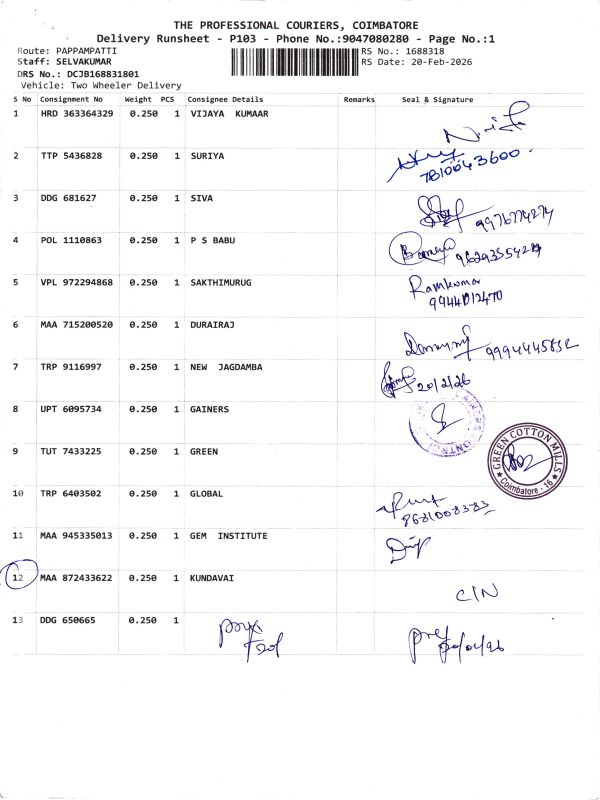 THE PROFESSIONAL COURIERS, COIMBATORE
Delivery Runsheet - P103 - Phone No.:9047080280 - Page No.:1
Route: PAPPAMPATTI
RS No.: 1688318
Staff: SELVAKUMAR
RS Date: 20-Feb-2026
DRS No.: DCJB168831801
Vehicle: Two Wheeler Delivery
S No Consignment No Weight PCS Consignee Details Remarks Seal & Signature
1 HRD 363364329 0.250 1 VIJAYA KUMAAR
2 TTP 5436828 0.250 1 SURIYA
7810043600
3 DDG 681627 0.250 1 SIVA
9976774274
4 POL 1110863 0.250 1 P S BABU
5 VPL 972294868 0.250 1 SAKTHIMURUG
Ramkumar
9944012470
6 MAA 715200520 0.250 1 DURAIRAJ
9994445832
7 TRP 9116997 0.250 1 NEW JAGDAMBA
20/2/26
8 UPT 6095734 0.250 1 GAINERS
9 TUT 7433225 0.250 1 GREEN
GREEN COTTON MILLS
Coimbatore - 16
10 TRP 6403502 0.250 1 GLOBAL
11 MAA 945335013 0.250 1 GEM INSTITUTE
12 MAA 872433622 0.250 1 KUNDAVAI
C/N
13 DDG 650665 0.250 1